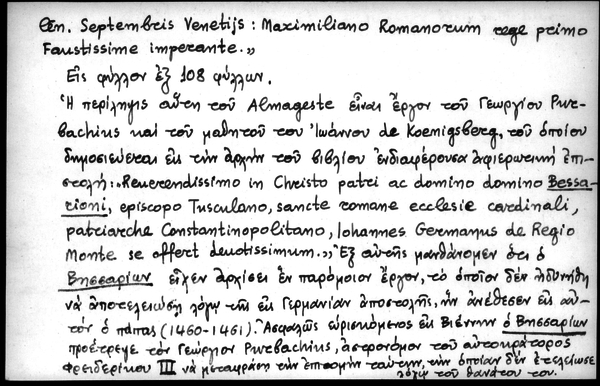 Cūn. Septembris Venetijs: Maximiliano Romanorum rege primo
Faustissime imperante.„
Εἰς φύλλον ἐξ 108 φύλλων.
Ἡ περίληψις αὕτη τοῦ Almageste εἶναι ἔργον τοῦ Γεωργίου Pur-
bachius καὶ τοῦ μαθητοῦ του Ἰωάννου de Koenigsberg, τοῦ ὁποίου
δημοσιεύεται εἰς τὴν ἀρχὴν τοῦ βιβλίου ἐνδιαφέρουσα ἀφιερωτικὴ ἐπι-
στολή: „Reuerendissimo in Christo patri ac domino domino Bessa-
rioni, episcopo Tusculano, sancte romane ecclesie cardinali,
patriarche Constantinopolitano, Iohannes Germanus de Regio
Monte se offert deuotissimum.„ Ἐξ αὐτῆς μανθάνομεν ὅτι ὁ
Βησσαρίων εἶχεν ἀρχίσει ἓν παρόμοιον ἔργον, τὸ ὁποῖον δὲν ἠδυνήθη
νὰ ἀποτελειώσῃ λόγῳ τῆς εἰς Γερμανίαν ἀποστολῆς, ἣν ἀνέθεσεν εἰς αὐ-
τὸν ὁ πάπας (1460-1461). Ἀσφαλῶς εὑρισκόμενος εἰς Βιέννην ὁ Βησσαρίων
προέτρεψε τὸν Γεώργιον Purbachius, ἀστρονόμον τοῦ αὐτοκράτορος
Φρειδερίκου III νὰ μεταφράσῃ τὴν ἐπιτομὴν ταύτην, τὴν ὁποίαν δὲν ἐτελείωσε
λόγῳ τοῦ θανάτου του.